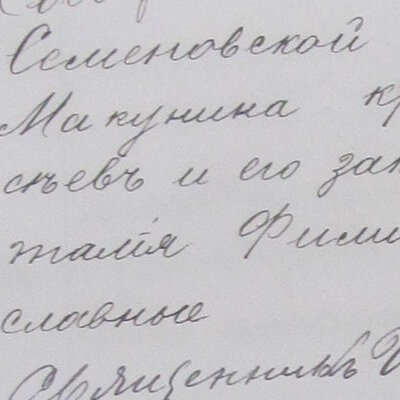 Семеновской
Макунина кр
сѣевъ и его зак
талія Фили
славные
Священникъ